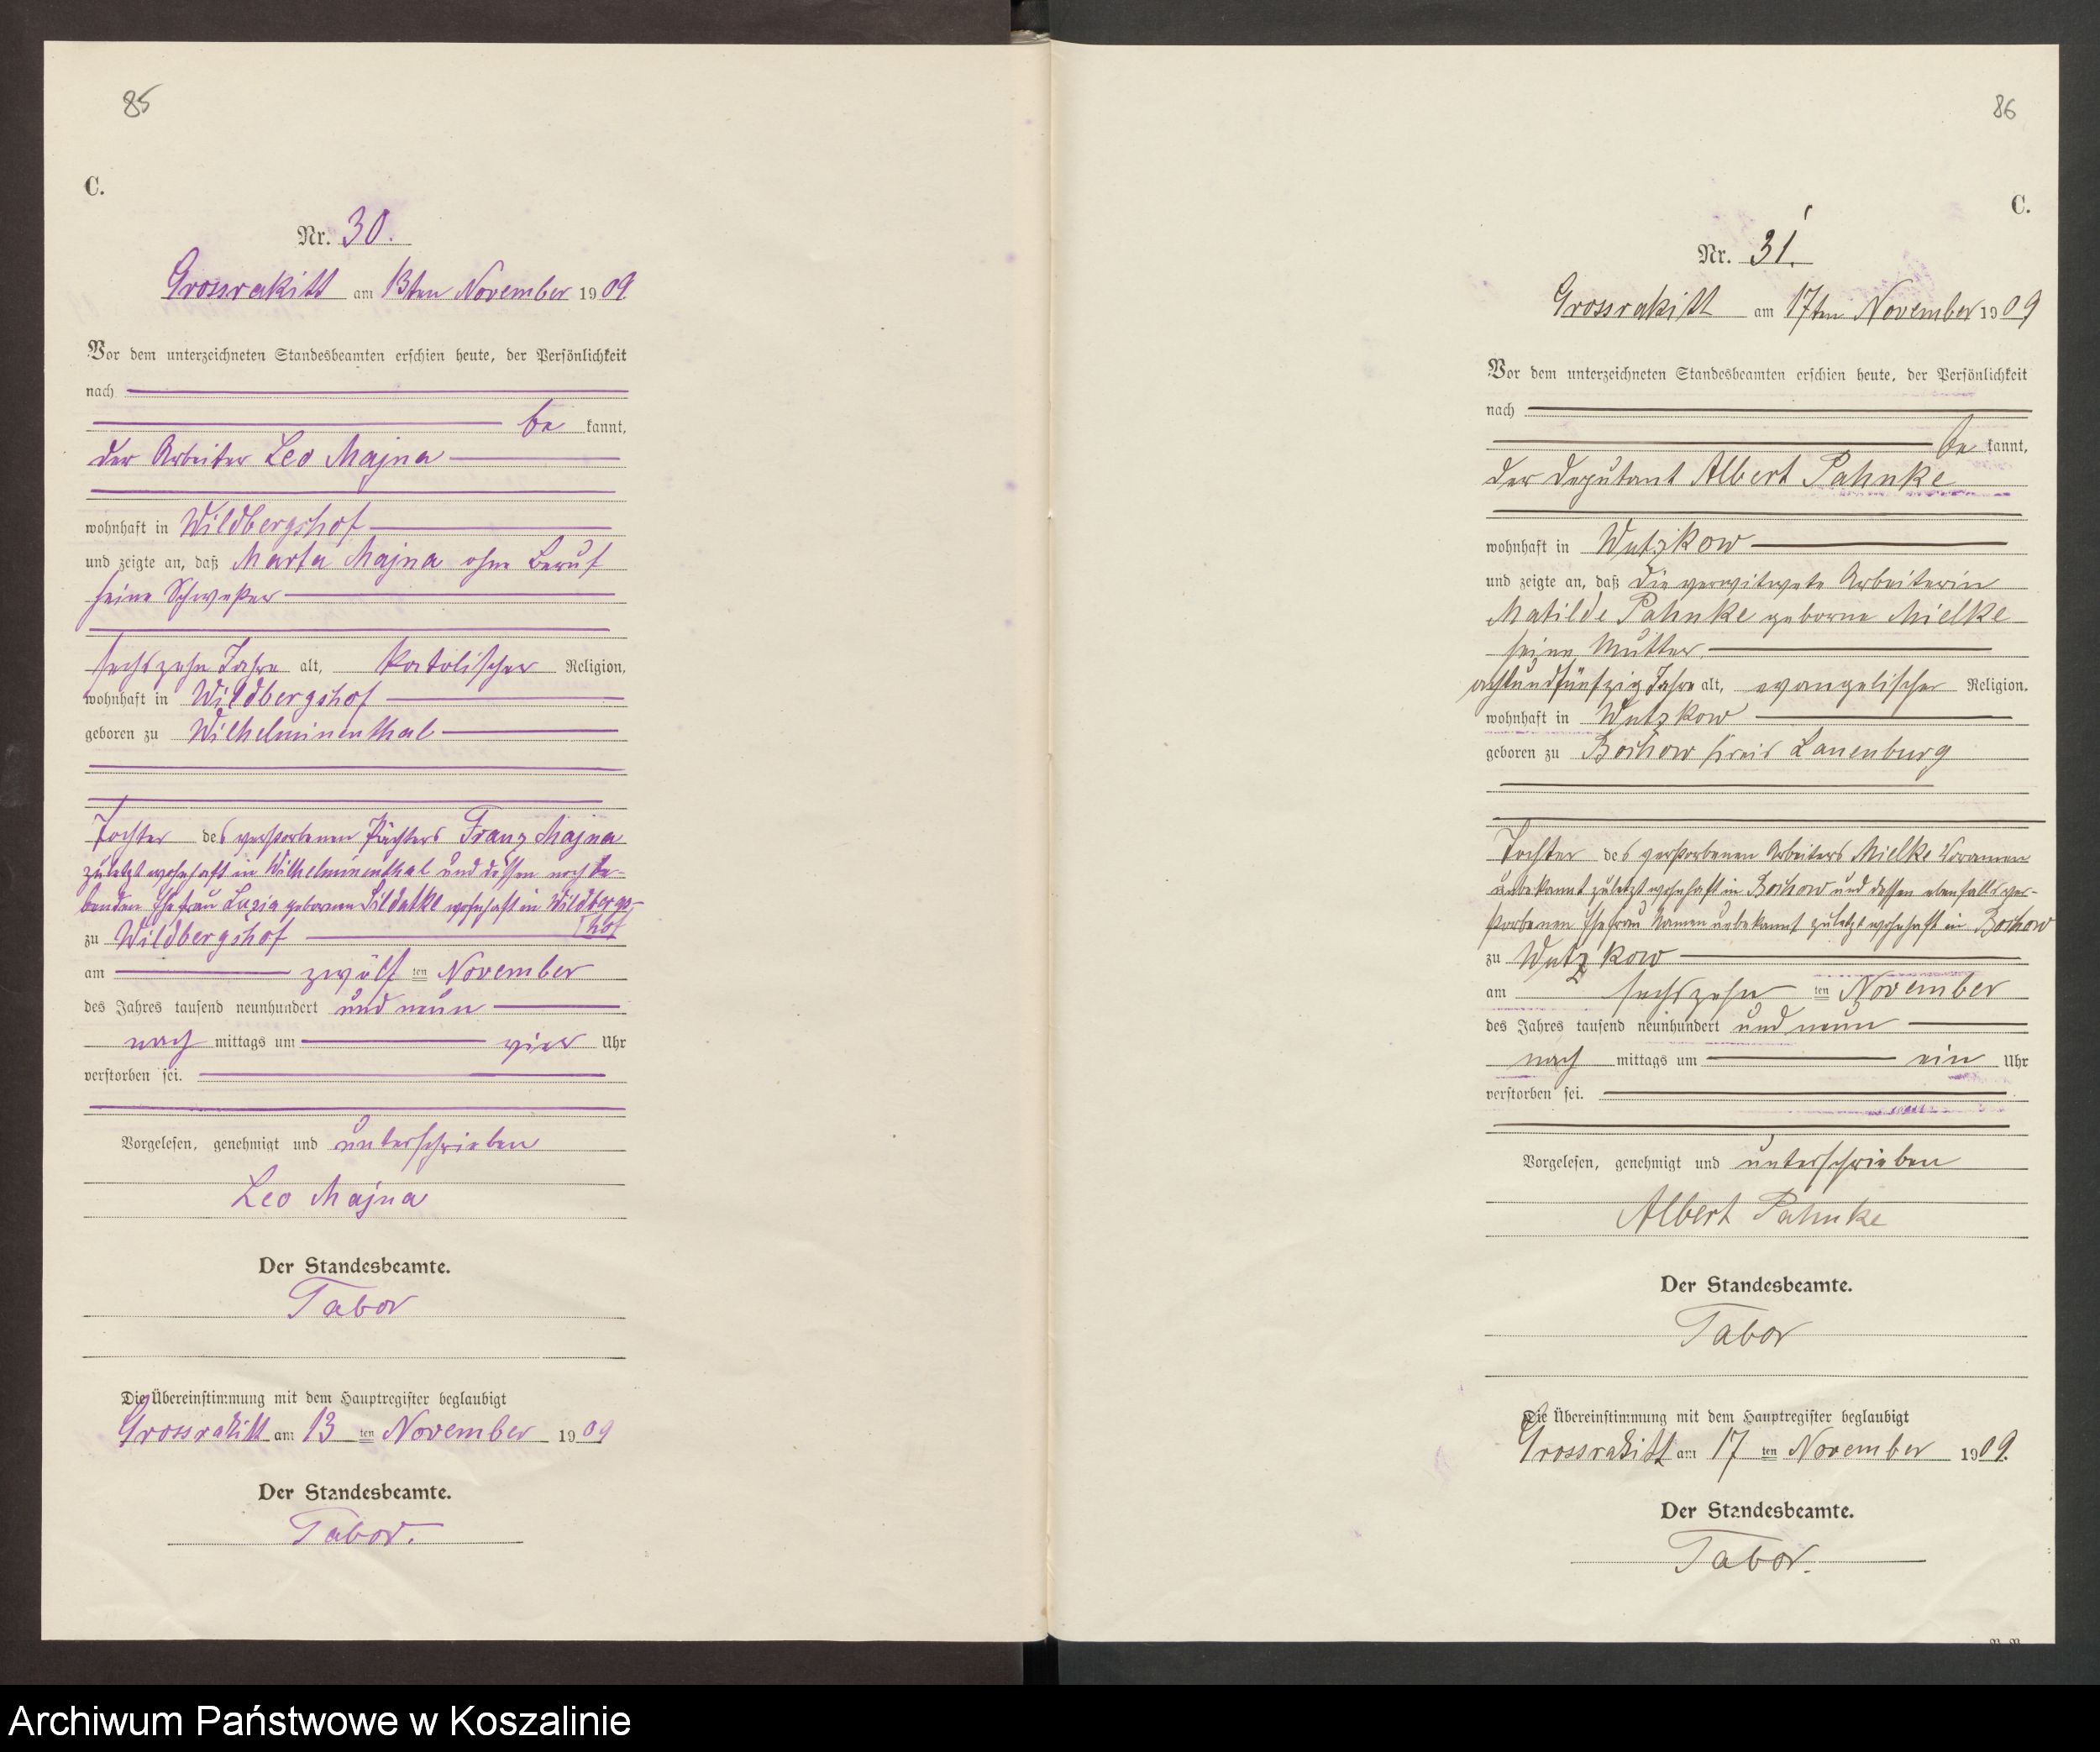 85
C.
Nr. 30.
Grossrakitt am 13ten November 1909.
Vor dem unterzeichneten Standesbeamten erschien heute, der Persönlichkeit
nach
be kannt,
der Arbeiter Leo Majna
wohnhaft in Wildbergshof
und zeigte an, daß Marta Majna ohne Beruf
seine Schwester
sechszehn Jahre alt, katolischer Religion,
wohnhaft in Wildbergshof
geboren zu Wilhelminenthal
Tochter des verstorbenen Pächters Franz Majna
zuletzt wohnhaft in Wilhelminenthal und dessen noch le-
benden Ehefrau Luzia geborenen Sildatke wohnhaft in Wildbergs-
hof
zu Wildbergshof
am zwölf ten November
des Jahres tausend neunhundert und neun
nach mittags um vier Uhr
verstorben sei.
Vorgelesen, genehmigt und unterschrieben
Leo Majna
Der Standesbeamte.
Tabor
Die Übereinstimmung mit dem Hauptregister beglaubigt
Grossrakitt am 13 ten November 1909
Der Standesbeamte.
Tabor.
86
C.
Nr. 31.
Grossrakitt am 17ten November 1909
Vor dem unterzeichneten Standesbeamten erschien heute, der Persönlichkeit
nach
be kannt,
der Deputant Albert Pahnke
wohnhaft in Wutzkow
und zeigte an, daß die verwitwete Arbeiterin
Matilde Pahnke geborne Mielke
seine Mutter
achtundfünfzig Jahre alt, evangelischer Religion,
wohnhaft in Wutzkow
geboren zu Bochow Kreis Lauenburg
Tochter des verstorbenen Arbeiters Mielke Voramen
unbekannt zuletzt wohnhaft in Bochow und dessen ebenfalls ver-
storbenen Ehefrau Namen unbekannt zuletzt wohnhaft in Bochow
zu Wutzkow
am sechszehn ten November
des Jahres tausend neunhundert und neun
nach mittags um ein Uhr
verstorben sei.
Vorgelesen, genehmigt und unterschrieben
Albert Pahnke
Der Standesbeamte.
Tabor
Die Übereinstimmung mit dem Hauptregister beglaubigt
Grossrakitt am 17 ten November 1909.
Der Standesbeamte.
Tabor.
Archiwum Państwowe w Koszalinie